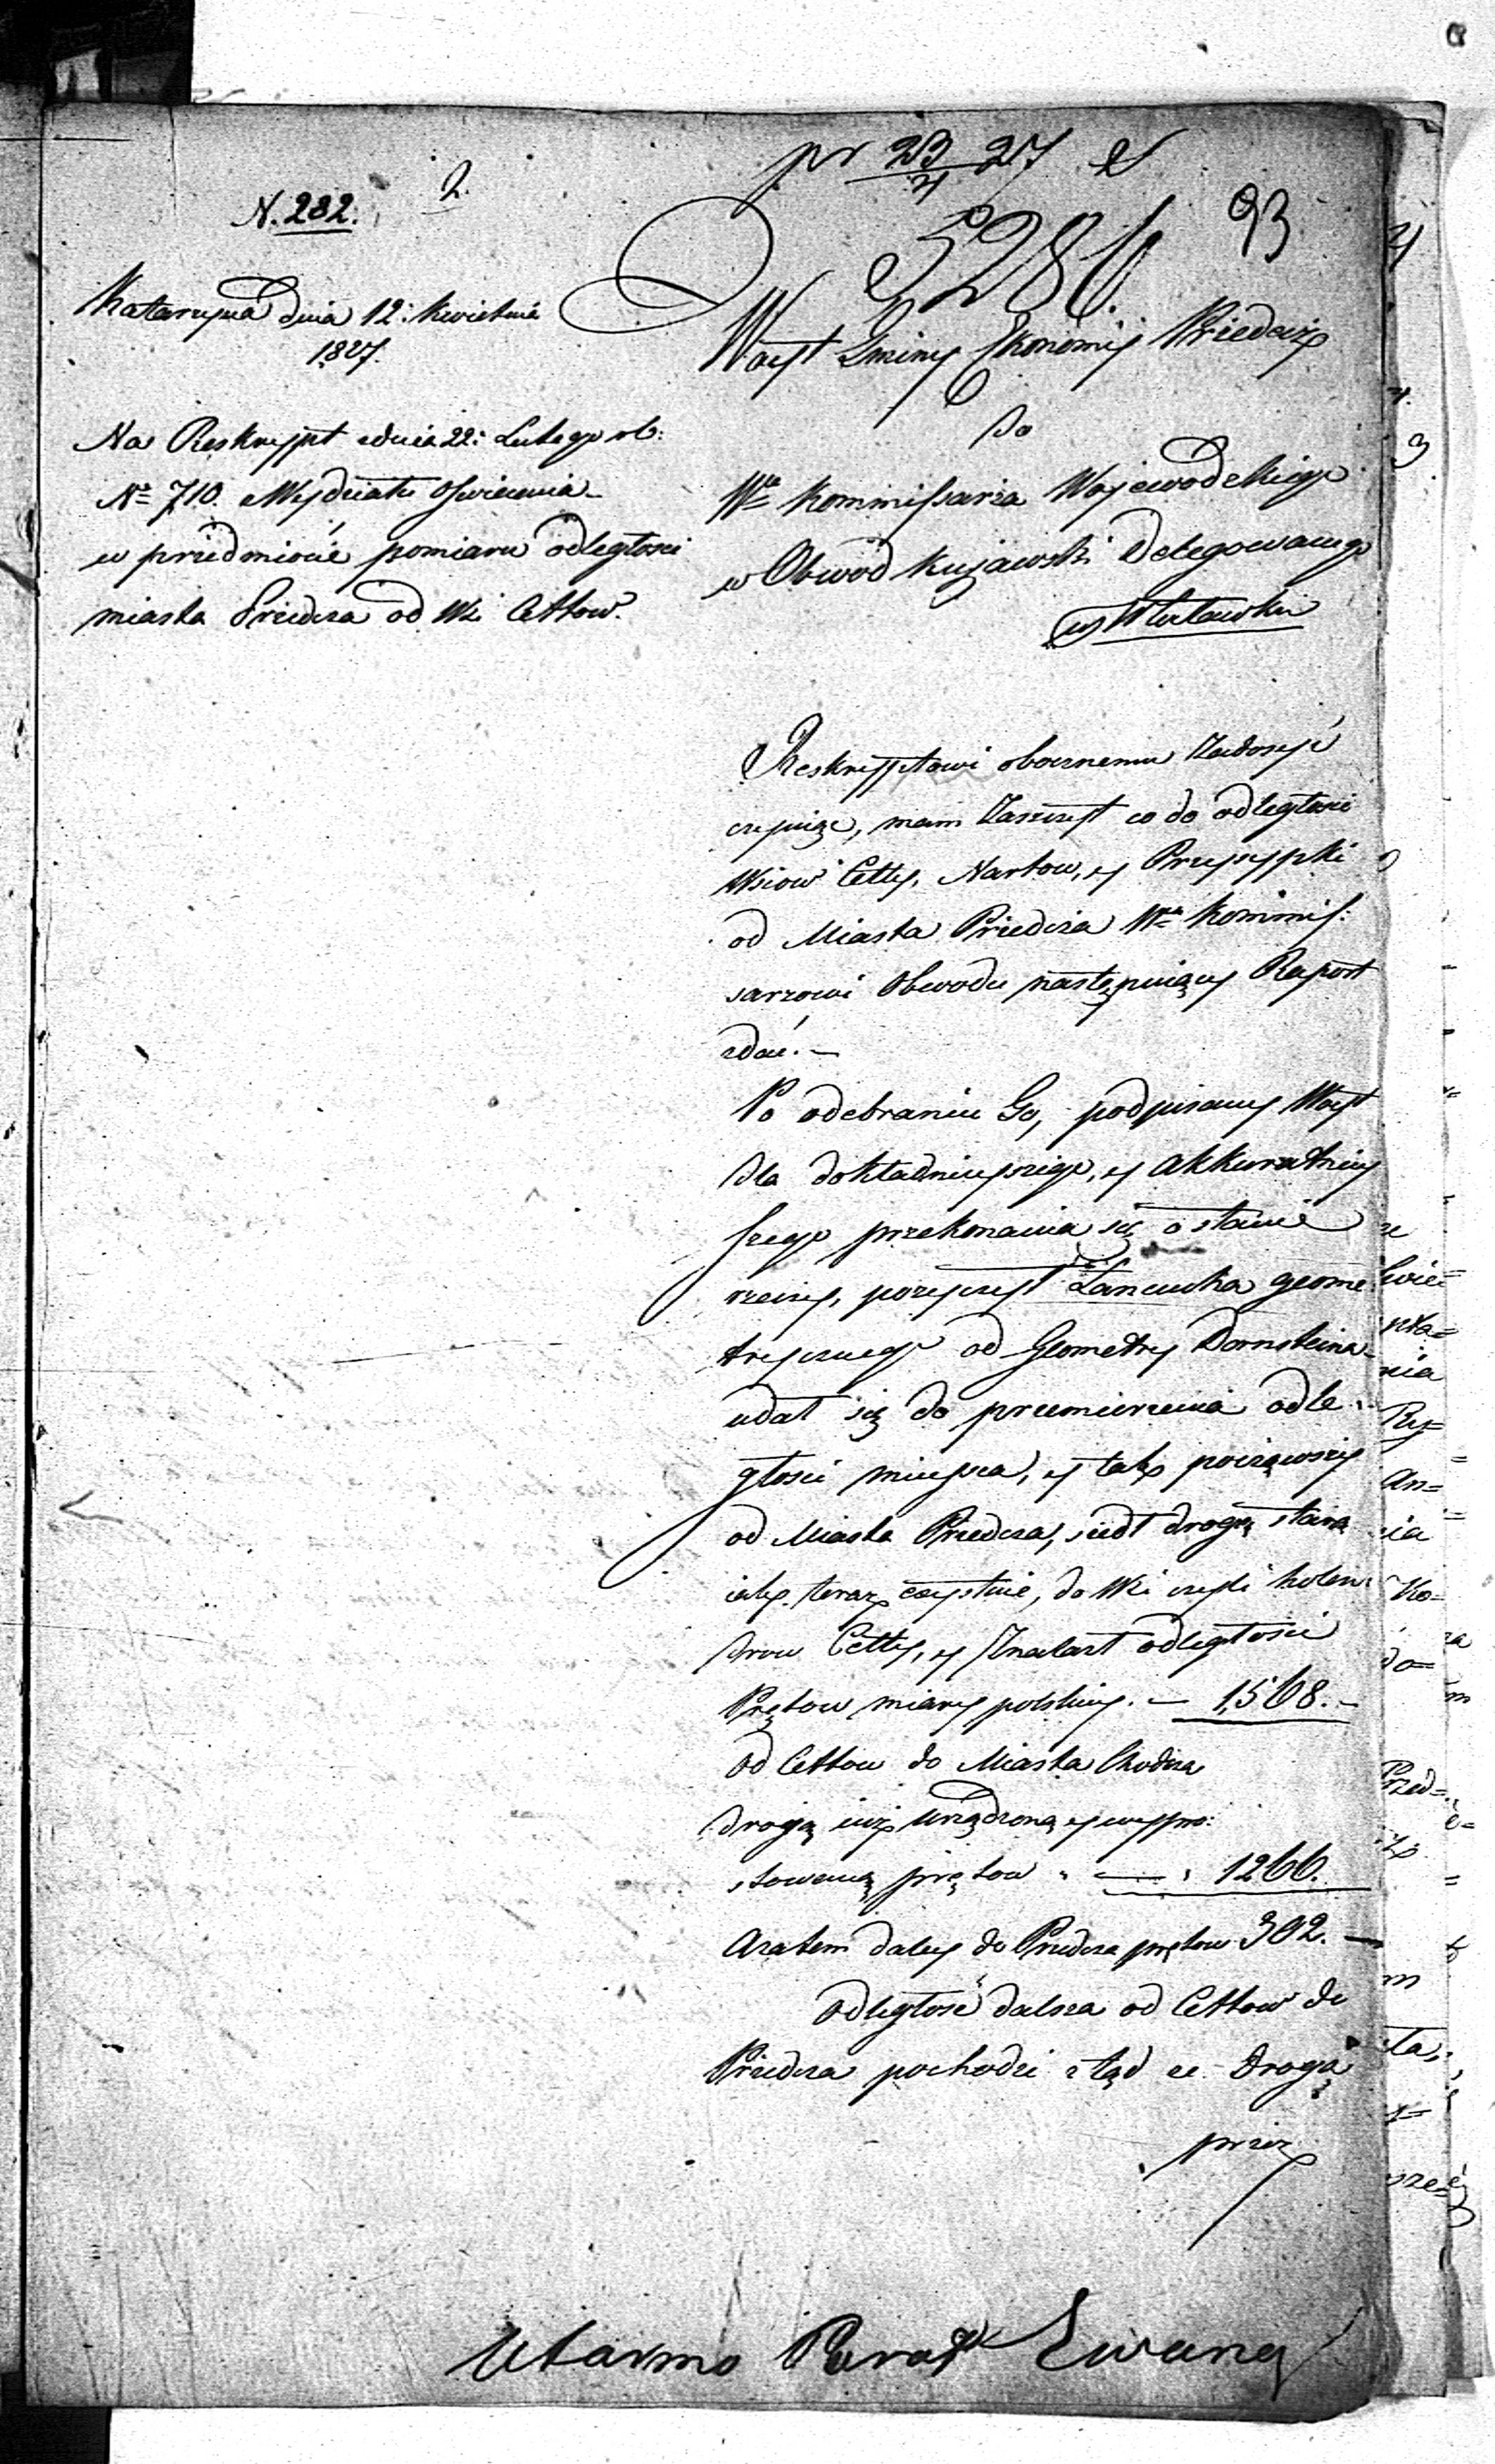 pr 23/4 27
N. 282. 2.
5286
93
Katarzyna dnia 12: Kwietnia
1827.
Woyt Gminy Ekonomij Przedecz
do
Na Reskrypt zdnia 22: Lutego rb:
Nº 710. Wydziału Oświecenia
w przedmiocie pomiaru odległosci
miasta Przedcza od Wsi Cettow.
Kommissarza Wojewodzkiego
w Obwod Kujawski Delegowanego
w Włocławku
Reskryptowi obocznemu Zadosyć
czyniąc, mam Zaszczyt co do odległosci
Wsiow Cetty, Nartow, y Przysypki
od Miasta Przedcza Kommis:
sarzowi Obwodu następuiący Raport
zdać. —
Po odebraniu Go, podpisany Woyt
dla dokładnieyszego, y akkuratniey
szego przekonania się o stanie
rzeczy, pożyczył Łancucha geome
trycznego od Geometry Dornsteina
udał się do przemierzenia odle
głosci mieysca, y tak począwszy
od Miasta Przedcza, szedł drogą starą
iak teraz exystuie, do Wsi czyli holen
drow Cetty, y Znalazł odległosci
Prętow miary polskiey. — 1,568. —
od Cettow do Miasta Chodcza
drogą iuż urządzoną y wypro:
stowaną prętow — 1266.
Azatem daley do Przedcza prętow 302. —
odległość dalsza od Cettow do
Przedcza pochodzi ztąd że droga
przez
Parafi Ewang